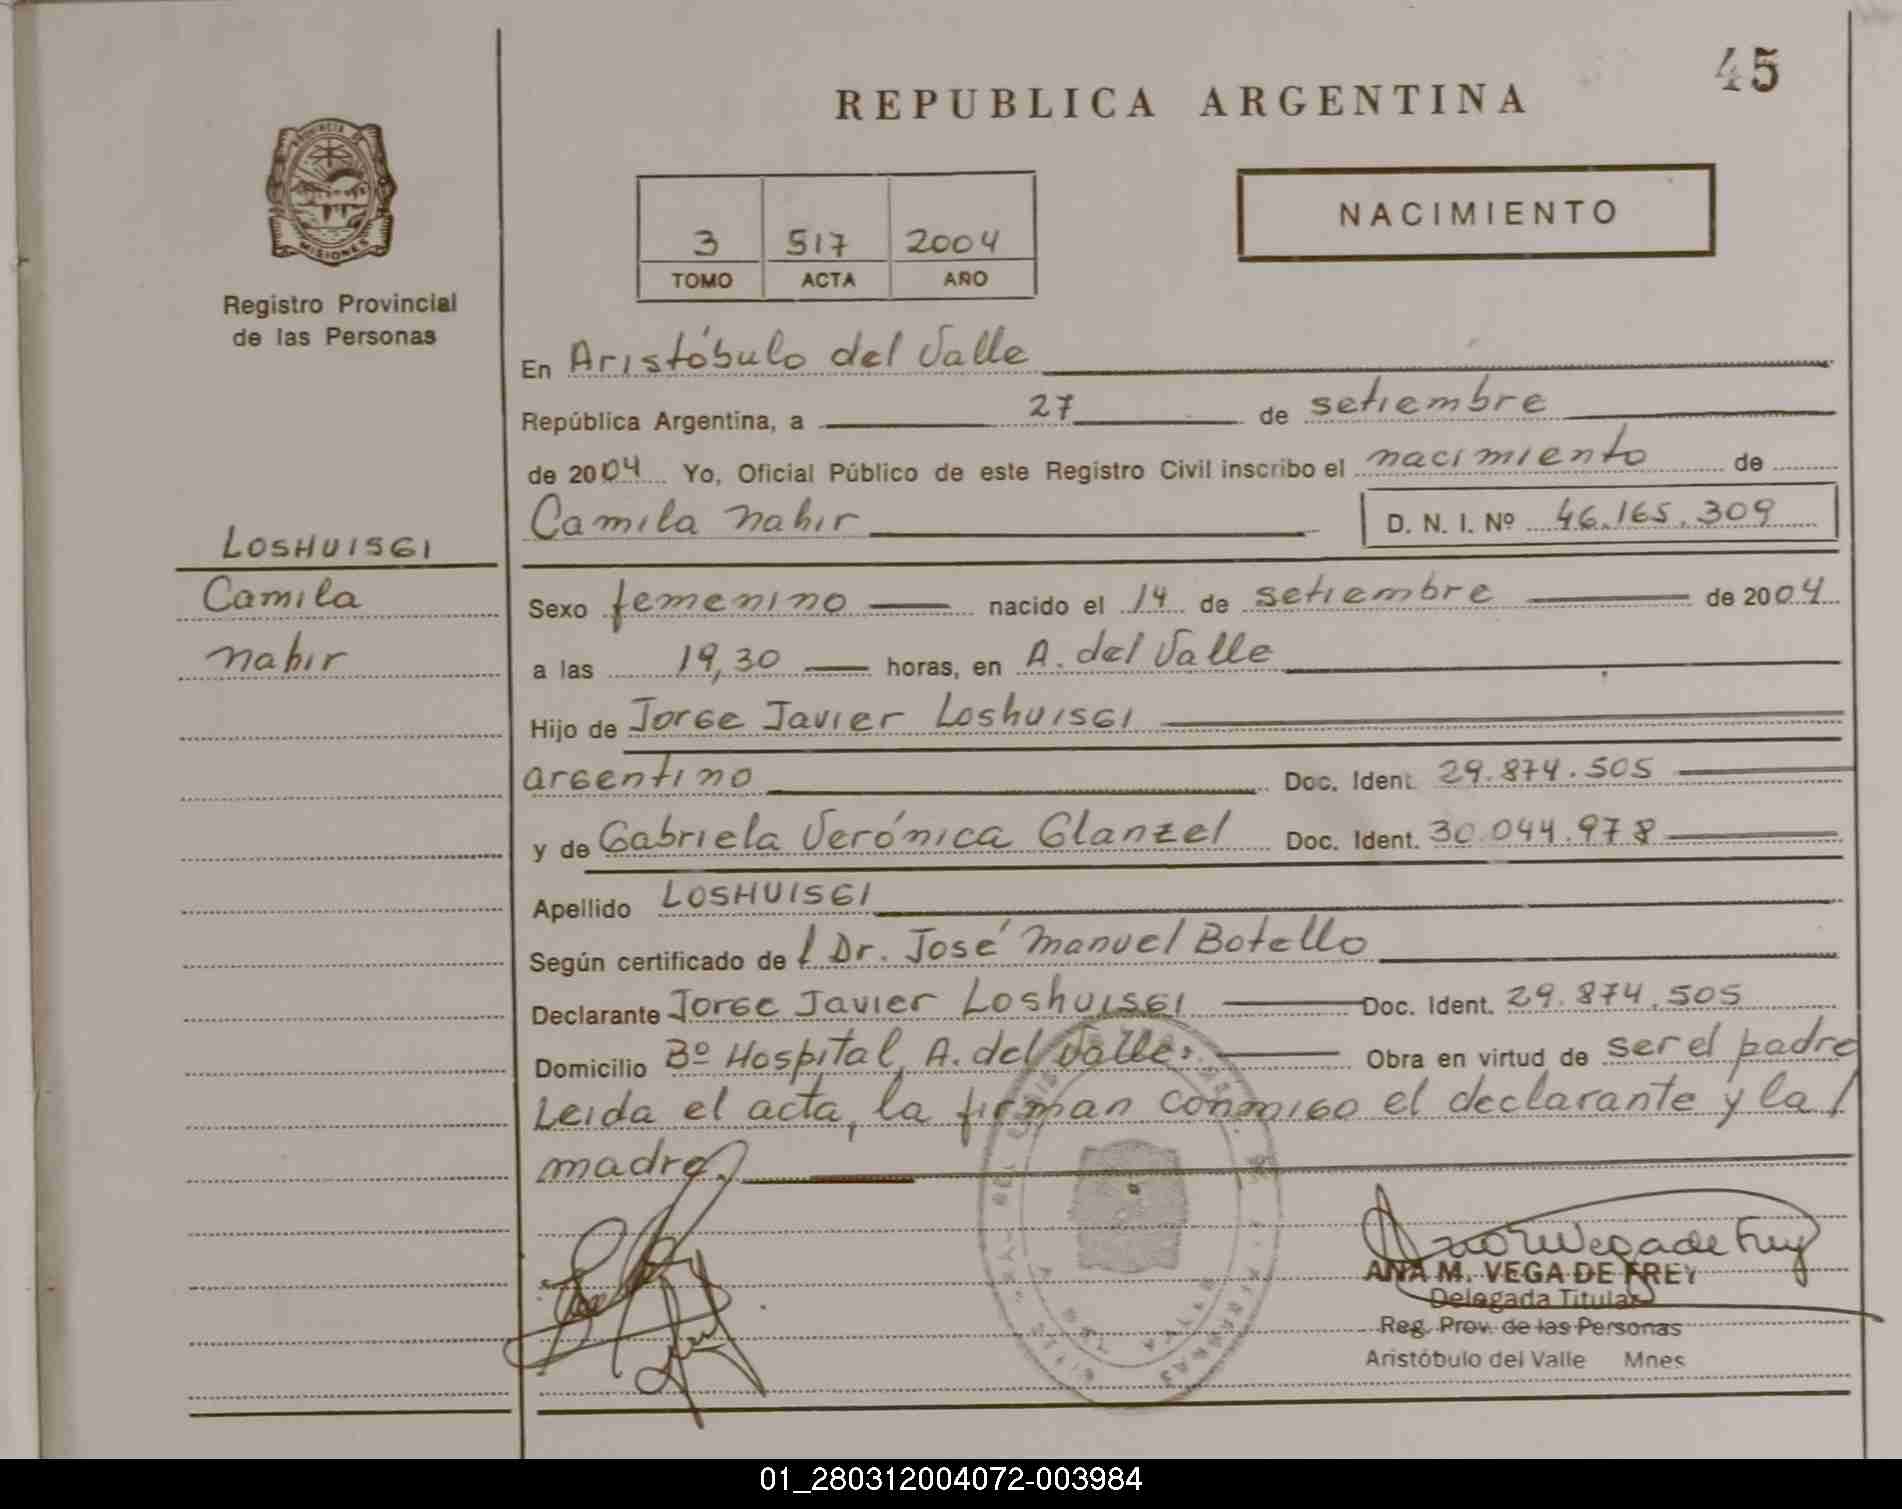 45
REPUBLICA ARGENTINA
PROVINCIA DE
MISIONES
Registro Provincial
de las Personas
3 517 2004
TOMO ACTA AÑO
NACIMIENTO
En Aristóbulo del Valle
República Argentina, a 27 de setiembre
de 2004 Yo, Oficial Público de este Registro Civil inscribo el nacimiento de
Camila Nahir D. N. I. Nº 46.165.309
LOSHUISGI
Camila
Nahir
Sexo femenino nacido el 14 de setiembre de 2004
a las 19,30 horas, en A. del Valle
Hijo de Jorge Javier Loshuisgi
argentino Doc. Ident. 29.874.505
y de Gabriela Verónica Glanzel Doc. Ident. 30.044.978
Apellido LOSHUISGI
Según certificado de l Dr. José Manuel Botello
Declarante Jorge Javier Loshuisgi Doc. Ident. 29.874.505
Domicilio Bº Hospital, A. del Valle. Obra en virtud de ser el padre
Leida el acta, la firman conmigo el declarante y la /
madre.
Ana M Vega de Frey
ANA M. VEGA DE FREY
Delegada Titular
Reg. Prov. de las Personas
Aristóbulo del Valle Mnes
01_280312004072-003984